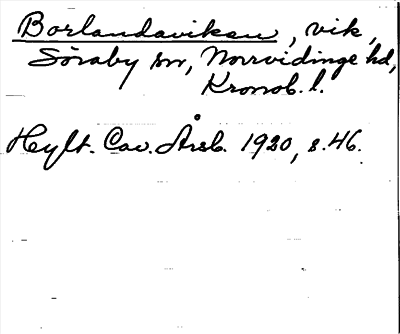 Borlandaviken, vik,
Söraby sn, Norrvidinge hd,
Kronob. l.
Hylt. Cav. Årsb. 1920, s. 46.